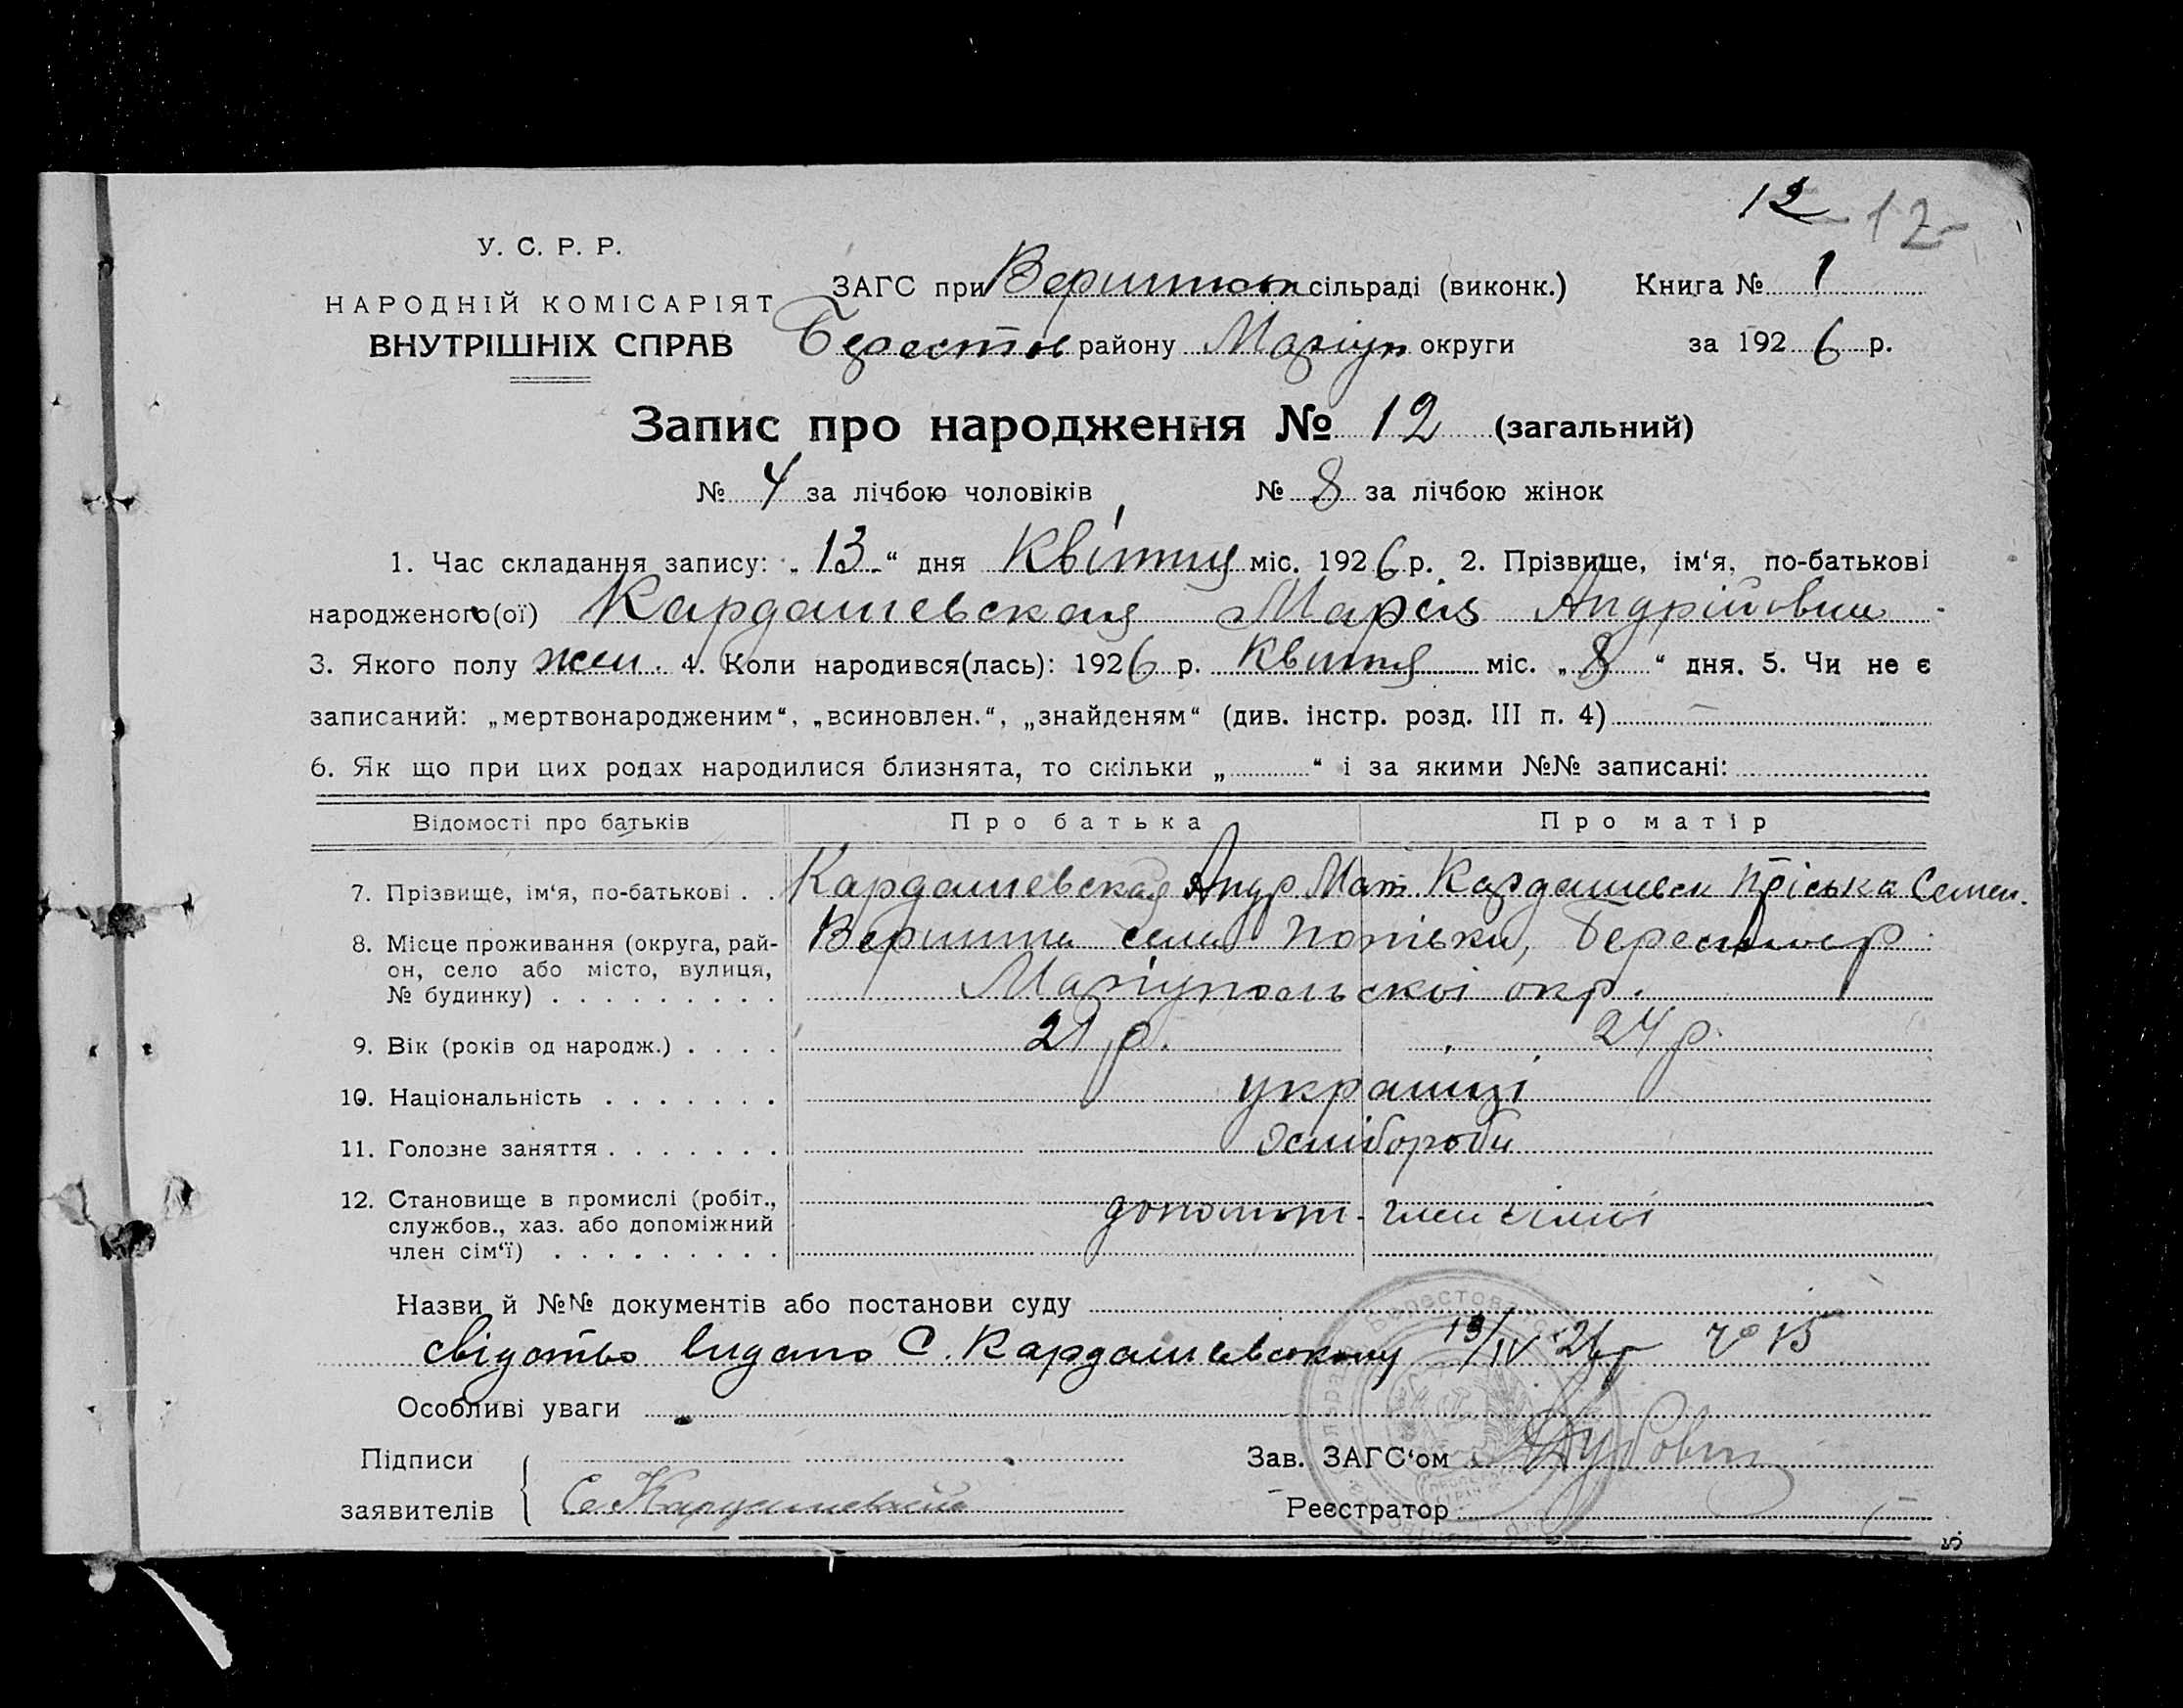 12 -12-
У. С. Р. Р.
НАРОДНІЙ КОМІСАРІЯТ
ВНУТРІШНІХ СПРАВ
ЗАГС при сільраді (виконк.) Книга № 1
Берестов району Маріуп округи за 1926 р.
Запис про народження № 12 (загальний)
№ 4 за лічбою чоловіків № 8 за лічбою жінок
1. Час складання запису: „13“ дня Квітня міс. 1926 р. 2. Прізвище, ім‘я, по-батькові
народженого(ої) Кардашевская Марія Андрійовна
3. Якого полу жен. 4. Коли народився(лась): 1926 р. Квитня міс. „8“ дня. 5. Чи не є
записаний: „мертвонародженим“, „всиновлен.“, „знайденям“ (див. інстр. розд. III п. 4) —
6. Як що при цих родах народилися близнята, то скільки „ “ і за якими №№ записані:
Відомості про батьків Про батька Про матір
7. Прізвище, ім‘я, по-батькові . . Кардашевская Андр Мат Кардашевск Пріська Семен.
8. Місце проживання (округа, рай-
он, село або місто, вулиця,
№ будинку) . . . . . . . . . села Попівки, Берестов р
Маріупольскоі окр.
9. Вік (років од народж.) . . . . 21 р. 24 р.
10. Національність . . . . . . . українці
11. Головне заняття . . . . . . . Хлібороби
12. Становище в промислі (робіт.,
службов., хаз. або допоміжний
член сім‘ї) . . . . . . . . . допоміжн. член сімьі
Назви й №№ документів або постанови суду
свідотво видано С. Кардашевському 13/IV 26 р № 15
Особливі уваги
Підписи
заявителів С Кардашевский
Зав. ЗАГС‘ом
Реєстратор